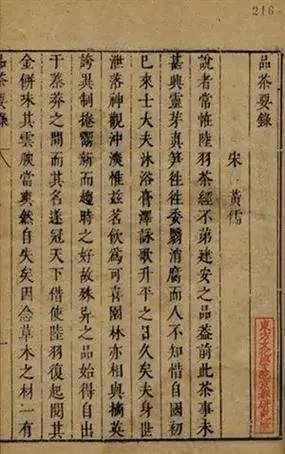 216
品茶要錄
宋 黃儒
說者常恠陸羽茶經不第建安之品葢前此茶事未
甚興靈芽真笋徃徃委翳消腐而人不知惜自國初
已來士大夫沐浴膏澤詠歌升平之日久矣夫身世
泄落神觀沖淡惟兹茗飲為可喜園林亦相與摘英
誇異制捲鬻新而趨時之好故殊异之品始得自出
于蓁莽之間而其名遂冠天下借使陸羽復起閱其
金餅味其雲腴當爽然自失矣因念草木之材一有
東方文化學院